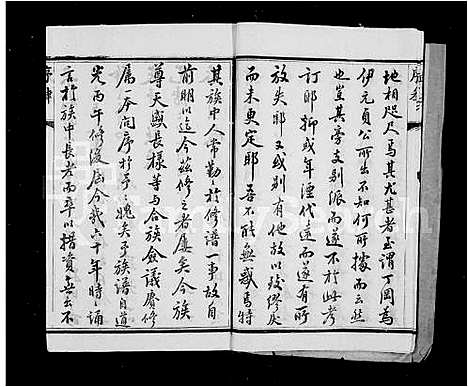 地相咫尺焉其尤甚者至謂丁岡爲
伊元貞公所出不知何所據而云然
也豈其旁支別派而遂不於此考
訂耶抑或年湮代遠而遂有所
放失耶又或別有他故以致繆戾
而未更定耶吾不能無感焉特
其族中人常勤於修譜一事故自
前明以迄今茲修之者屢矣今族
尊天盛長樣等与合族僉議賡修
屬一本问序於予媿矣予族譜自道
光丙午修後屆今幾六十年時誦
言於族中長老而卒以措資無出不